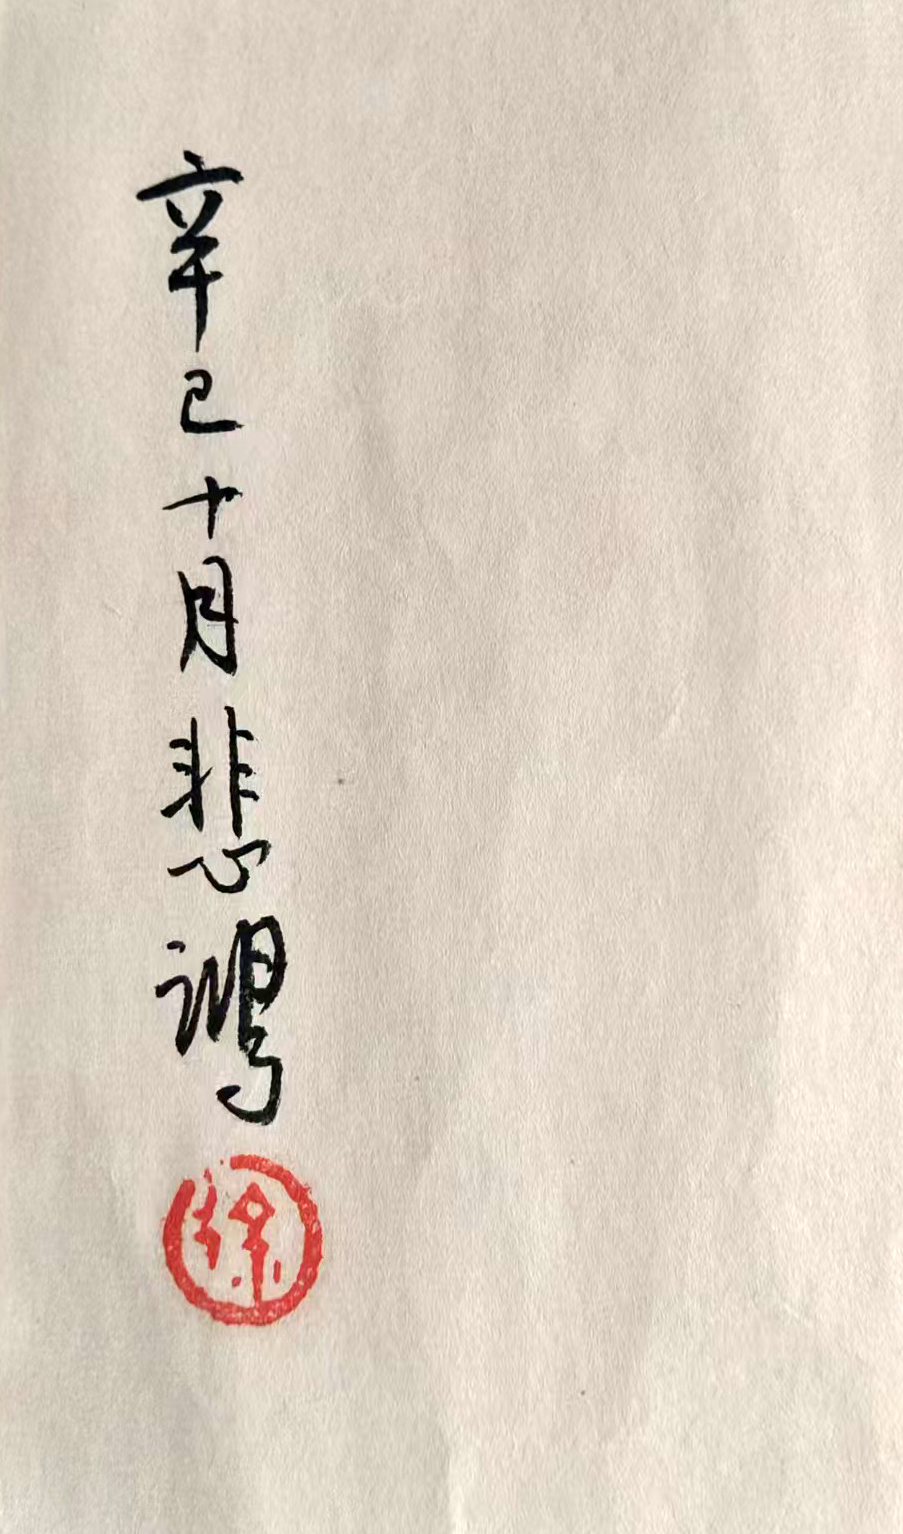 辛巳十月悲鴻
徐